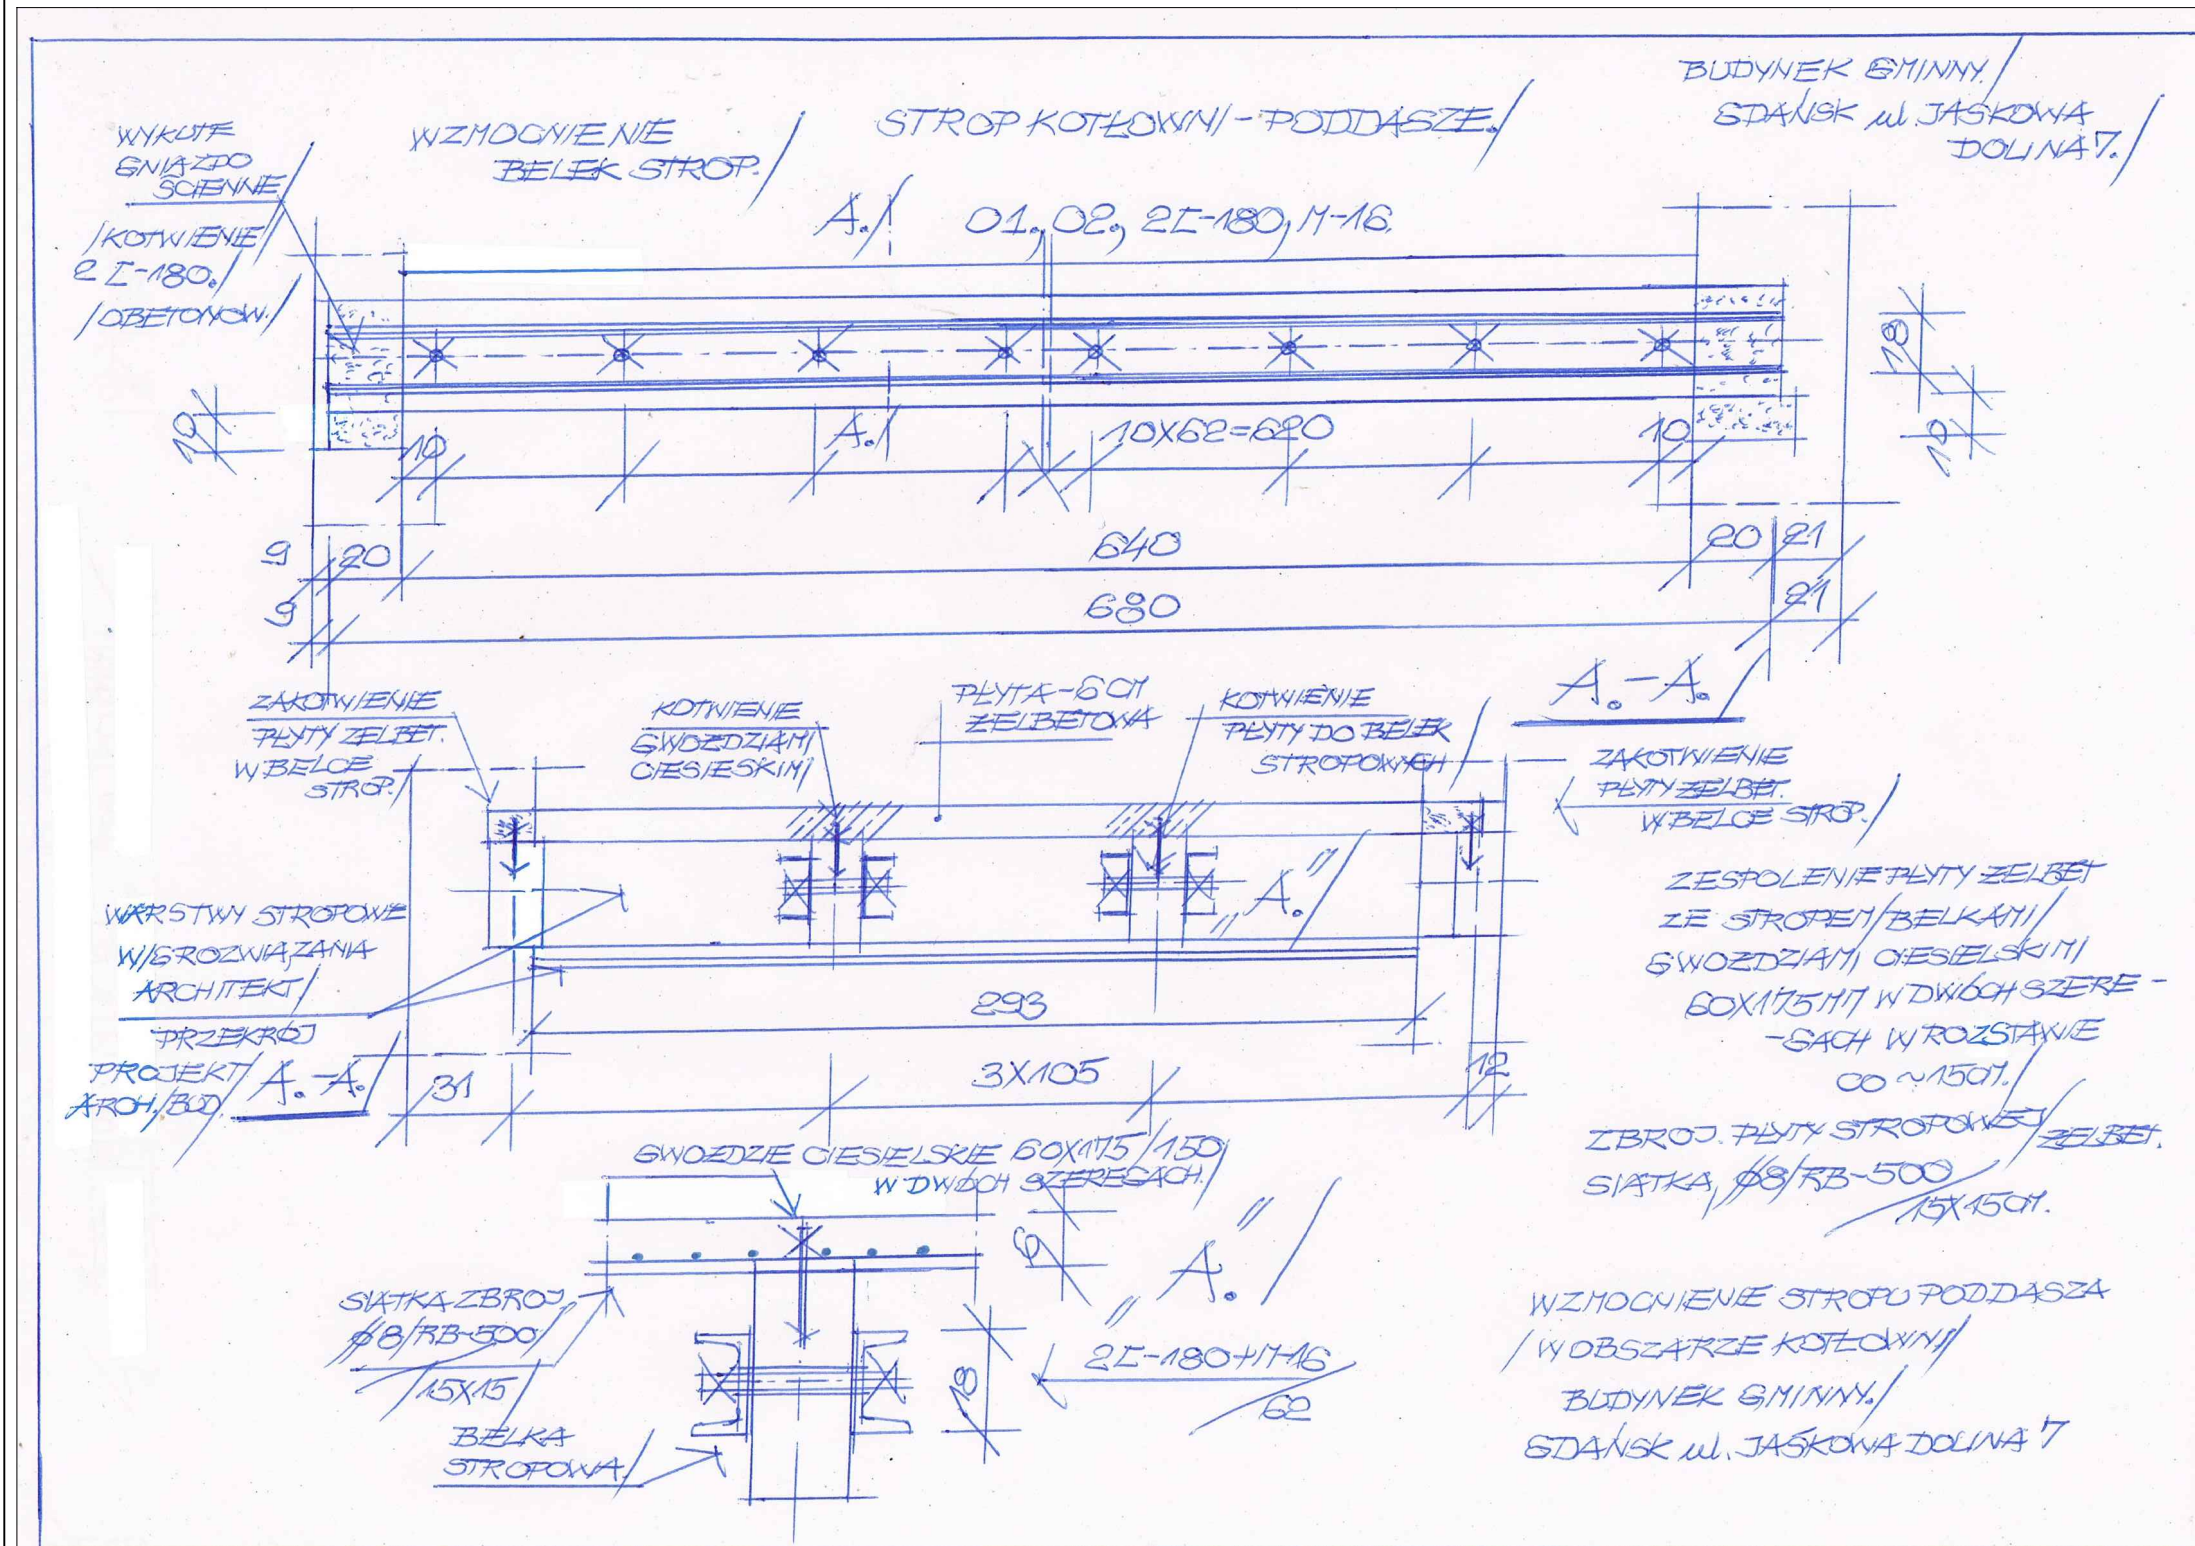 BUDYNEK GMINNY./
GDAŃSK ul. JAŚKOWA
DOLINA 7./
STROP KOTŁOWNI - PODDASZE./
WZMOCNIENIE
BELEK STROP./
WYKUTE
GNIAZDO
ŚCIENNE/
/KOTWIENIE/
2 [-180./
/OBETONOW./
A./
01., 02., 2[-180, M-16.
18
10
10
10
A./
10X62=620
10
9
20
640
20
21
9
680
21
A.-A./
ZAKOTWIENIE
PŁYTY ŻELBET.
W BELCE
STROP./
KOTWIENIE
GWOŹDZIAMI
CIESIESKIMI
PŁYTA - 6 CM
ŻELBETOWA
KOTWIENIE
PŁYTY DO BELEK
STROPOWYCH
ZAKOTWIENIE
PŁYTY ŻELBET.
W BELCE STROP./
WARSTWY STROPOWE
W/G ROZWIĄZANIA
ARCHITEKT/
PRZEKRÓJ
PROJEKT/
ARCH./BUD/
A.-A./
"A."/
293
31
3X105
12
ZESPOLENIE PŁYTY ŻELBET
ZE STROPEM/BELKAMI/
GWOŹDZIAMI CIESIELSKIMI
60X175MM W DWÓCH SZERE-
-GACH W ROZSTAWIE
CO ~15CM./
ZBROJ. PŁYTY STROPOWEJ/ŻELBET.
SIATKA, #8/RB-500/
15X15CM.
GWOŹDZIE CIESIELSKIE 60X175/150/
W DWÓCH SZEREGACH./
6
"A."/
SIATKA ZBROJ.
#8/RB-500/
/15X15/
18
2[-180+M-16
/62
BELKA
STROPOWA./
WZMOCNIENIE STROPU PODDASZA
/W OBSZARZE KOTŁOWNI/
BUDYNEK GMINNY./
GDAŃSK ul. JAŚKOWA DOLINA 7